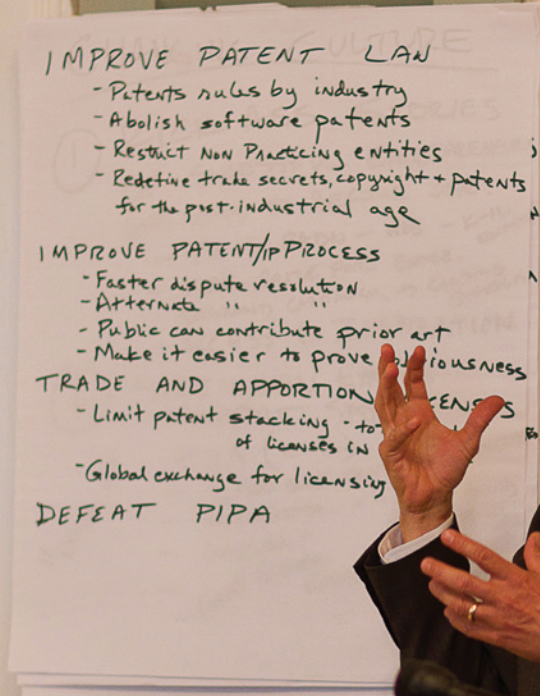 IMPROVE PATENT LAW
- Patents rules by industry
- Abolish software patents
- Restrict Non Practicing entities
- Redefine trade secrets, copyright + patents
for the post-industrial age
IMPROVE PATENT/IP PROCESS
- Faster dispute resolution
- Alternate " "
- Public can contribute prior art
- Make it easier to prove
TRADE AND APPORTION
- Limit patent stacking - 
of licenses in
- Global exchange for licensing
DEFEAT PIPA